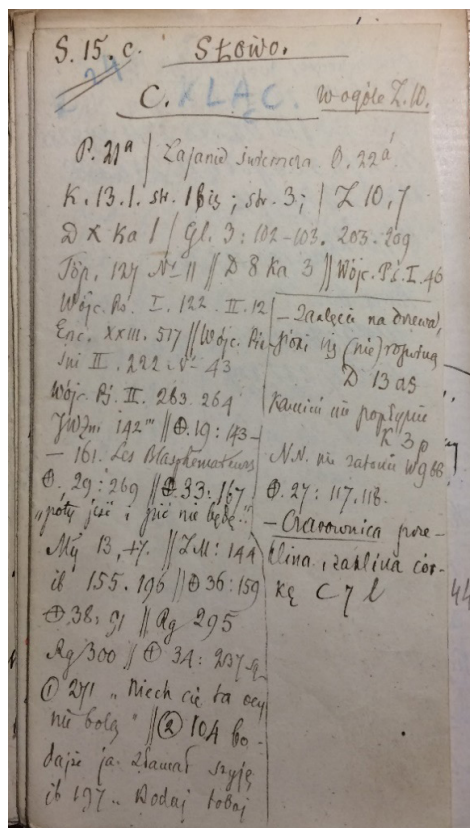 S. 15. c. Słowo.
C. KLĄC. w ogóle Z. 10.
P. 21a | Łajanie O. 22a
K. 13. 1. str. 1 bis ; str. 3 ; | Z 10, 7
D X Ka 1 / Gl. 3 : 102-103. 203-209
Töp. 127 № 11 || D 8 Ka 3 || Wójc. Pś. I. 46
Wójc. I. 122. II. 12
Enc. XXIII. 517 || Wójc. Pie-
śni II. 222 № 43
Wójc. Pś. II. 263. 264
142 || ⊕. 19 : 143-
- 161. Les Blasphemateurs
⊕. 29 : 269 || ⊕. 33 : 167
„póty jeść i pić nie będę..."
13, 47. || Z M : 144
ib 155. 196 || ⊕ 36 : 159
⊕. 38 : 91 || Rg 295
Rg 300 || ⊕ 34 :
① 271 „Niech cię ta ocy
nie bolą" || ② 104 bo-
dajże ja złamał szyję
ib 197 „Bodaj tobaj
- zaklęcie na drzewa,
(nie) rozwiną
D 13 a5
Kamień nie popłynie
K 3 p
N.N. nie zatonie w 9 88
⊕. 27 : 117. 118.
- Czarownica prze-
klina, zaklina cór-
kę C 7 l
44